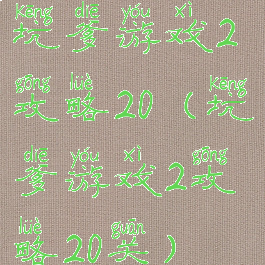 kēng diē yóu xì
坑爹游戏2
gōng lüè kēng
攻略20（坑
diē yóu xì gōng
爹游戏2攻
lüè guān
略20关）